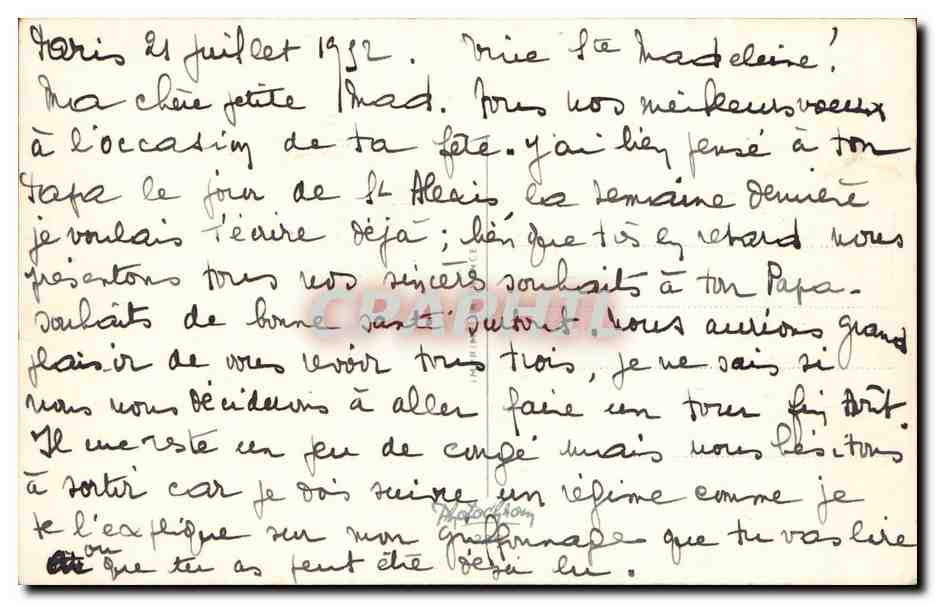 Paris 21 juillet 1952. Vive Ste Madeleine!
Ma chère petite Mad. Tous nos meilleurs voeux
à l'occasion de ta fête. J'ai bien pensé à ton
Papa le jour de St Alexis la semaine dernière
je voulais t'écrire déjà; bien que très en retard nous
présentons tous nos sincères souhaits à ton Papa-
souhaits de bonne santé surtout. Nous aurions grand
plaisir de vous revoir tous trois, je ne sais si
nous nous déciderons à aller faire un tour fin Août.
Il me reste un peu de congé mais nous hésitons
à sortir car je dois suivre un régime comme je
te l'explique sur mon griffonnage que tu vas lire
ou que tu as peut être déjà lu.
Photochrom
CPAPHIL